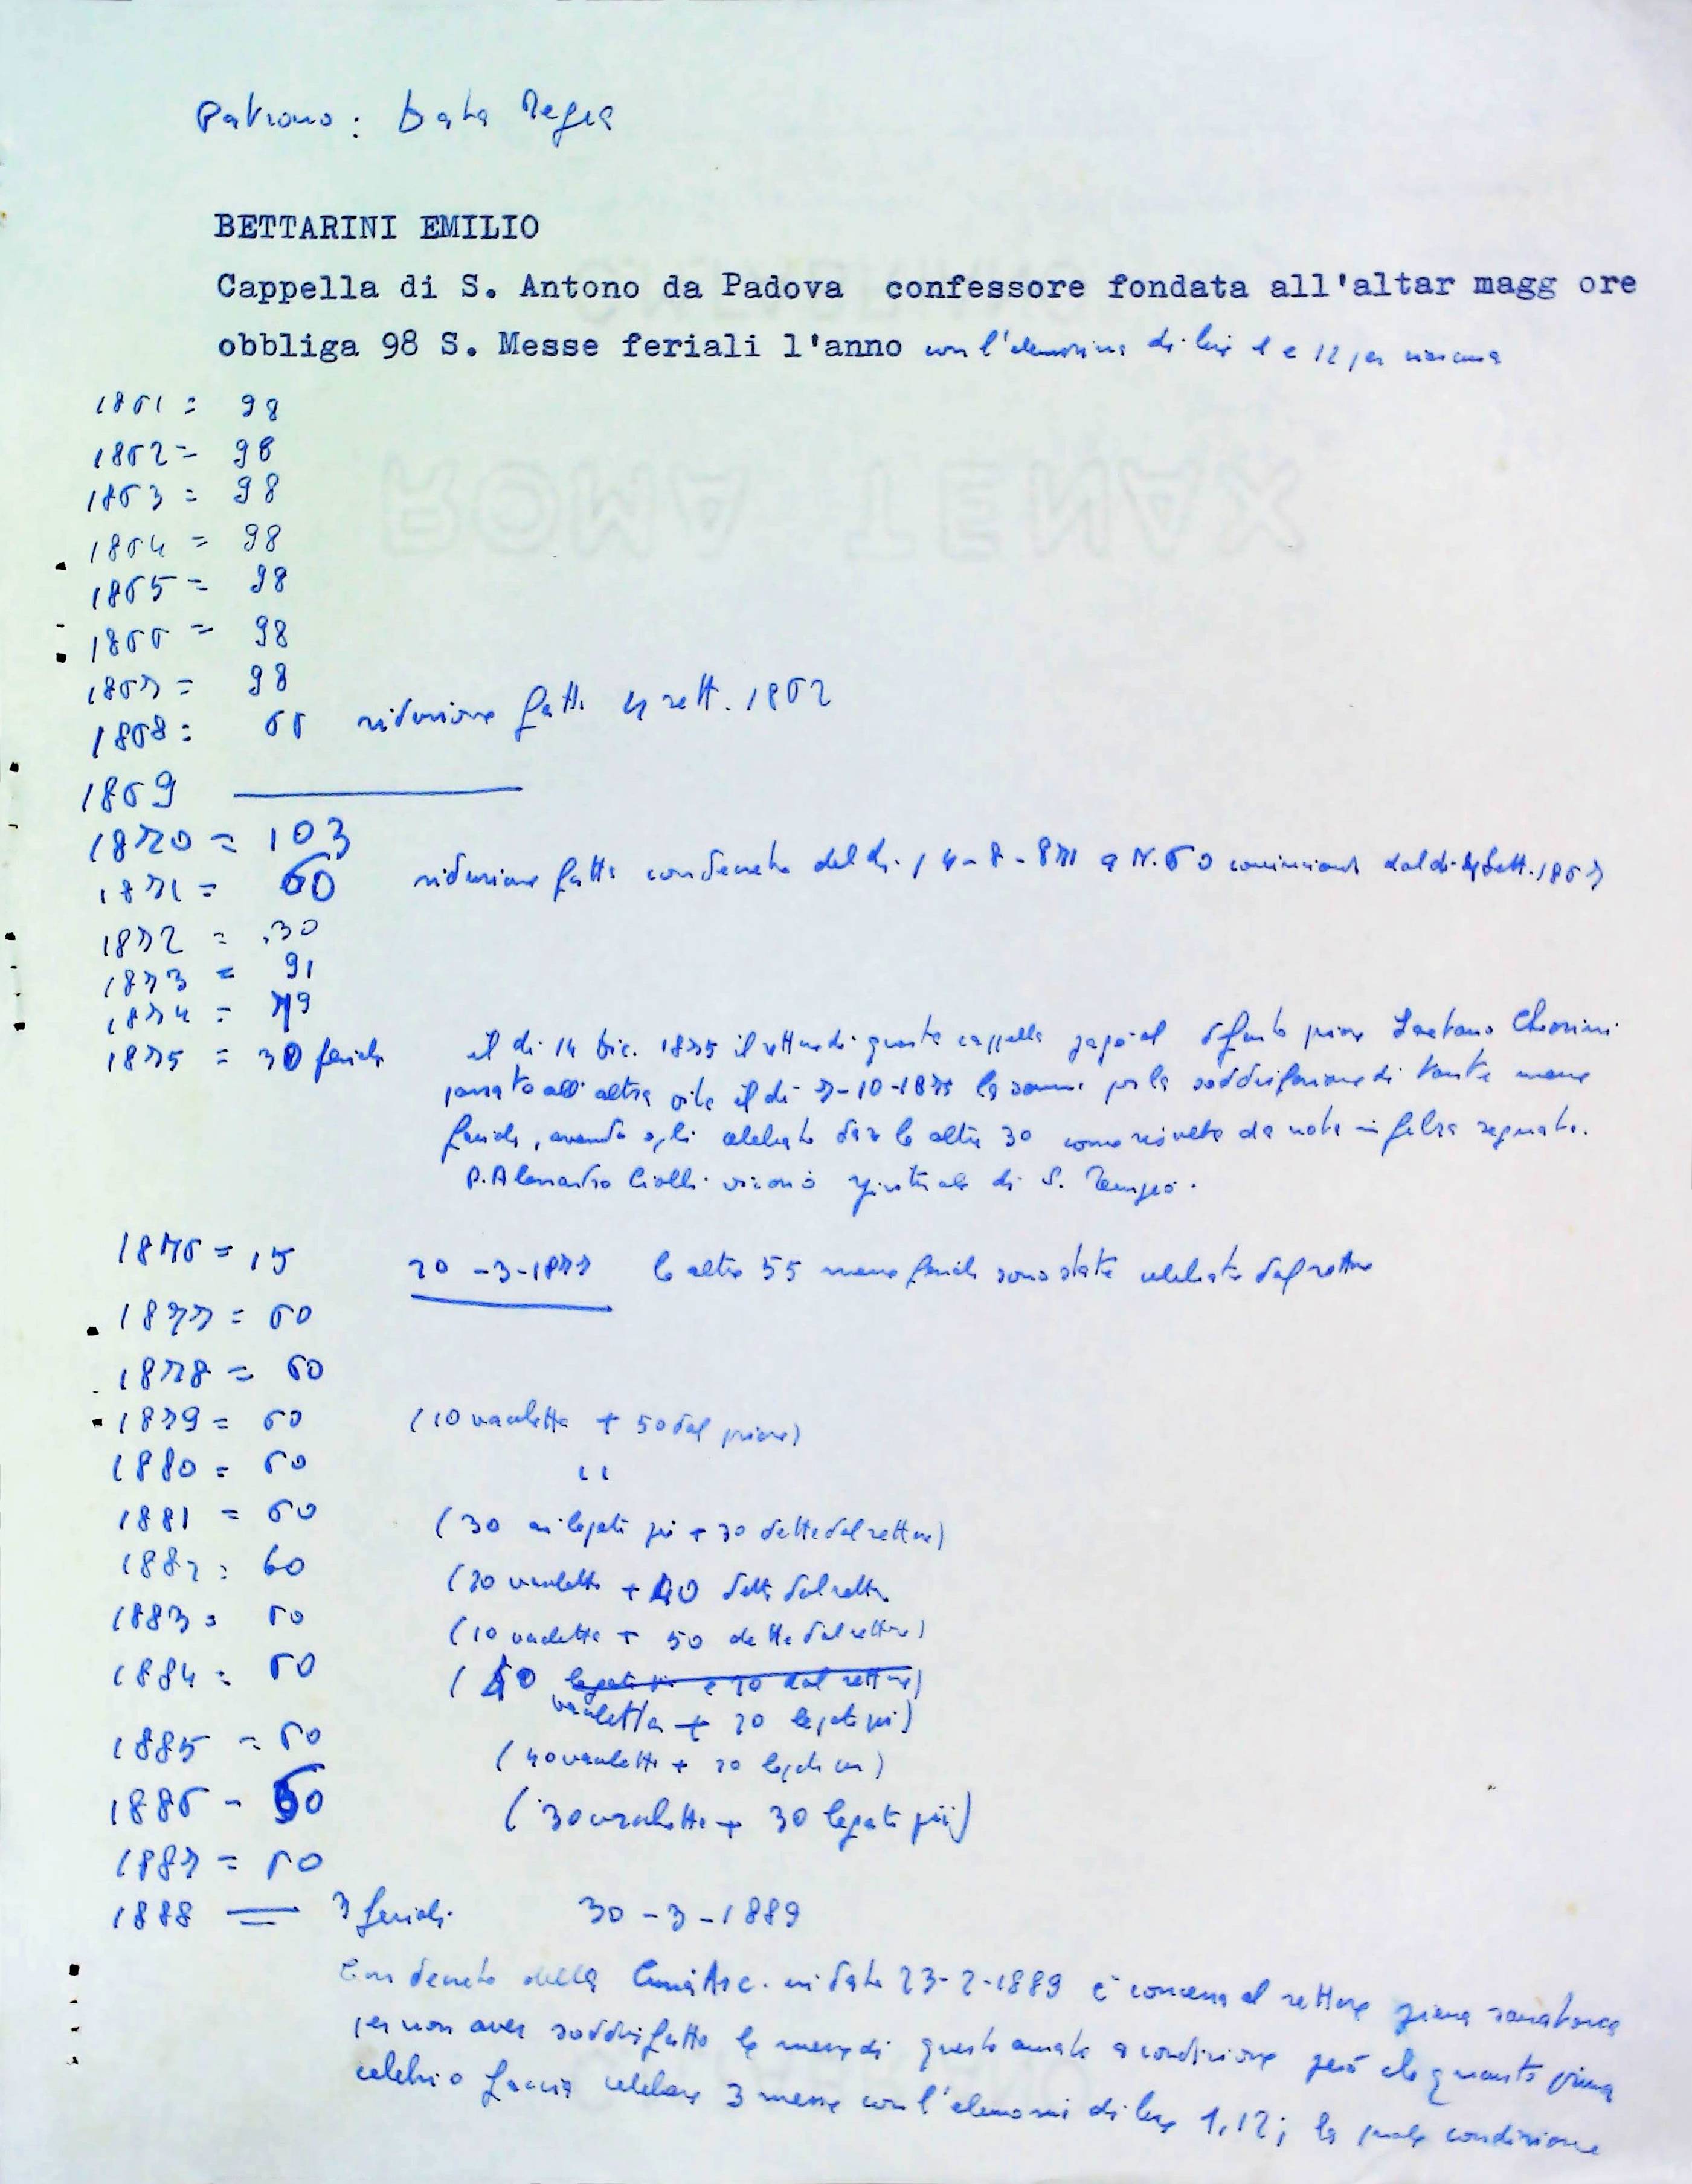 Patrono: Data Regia
BETTARINI EMILIO
Cappella di S. Antono da Padova confessore fondata all'altar magg ore
obbliga 98 S. Messe feriali l'anno con l'elemosina di lire 1 e 12 per ciascuna
1861 = 98
1862 = 98
1863 = 98
1864 = 98
1865 = 98
1866 = 98
1867 = 98
1868 = 66 riduzione fatta 4 sett. 1862
1869
1870 = 103
1871 = 60 riduzione fatta con decreto del dì 14-8-871 a N. 60 cominciando dal dì 4 Sett. 1867
1872 = 30
1873 = 91
1874 = 79
1875 = 30 feriali il dì 14 Dic. 1875 il rettore di questa cappella pagò al defunto priore Gaetano Chiosini
passato all'altra vita il dì 7-10-1875 la somma per la soddisfazione di tante messe
feriali, avendo egli celebrato dette altre 30 come risulta da nota in filza segnata.
P. Alessandro Ciolli vicario spirituale di S. Pompeo.
1876 = 15 20-3-1877 le altre 55 messe feriali sono state celebrate dal rettore
1877 = 60
1878 = 60
1879 = 60 (10 vacchetta + 50 dal priore)
1880 = 60 "
1881 = 60 (30 ai legati pii + 30 dette dal rettore)
1882 = 60 (20 vacchetta + 40 dette dal rettore
1883 = 60 (10 vacchetta + 50 dette dal rettore)
1884 = 60 (40 legati pii e 20 dal rettore)
vacchetta + 20 legati pii)
1885 = 60 (40 vacchetta + 20 legati pii)
1886 - 60 (30 vacchetta + 30 legati pii)
1887 = 60
1888 = 3 feriali 30-3-1889
Con decreto della Curia Arc. in data 23-2-1889 è concessa al rettore piena sanatoria
per non aver soddisfatto le messe di questa annata a condizione però che quanto prima
celebri o faccia celebrare 3 messe con l'elemosina di lire 1,12; la quale condizione